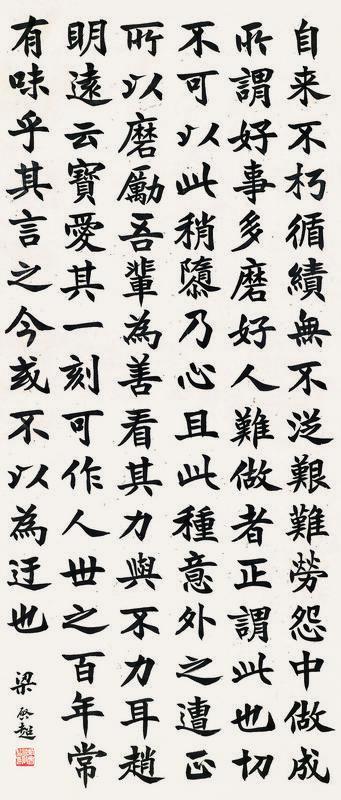 自来不朽循績無不從艱難勞怨中做成
所謂好事多磨好人難做者正謂此也切
不可以此稍隳乃心且此種意外之遭正
所以磨勵吾輩為善看其力與不力耳趙
明遠云寶愛其一刻可作人世之百年常
有味乎其言之今或不以為迂也
梁啟超